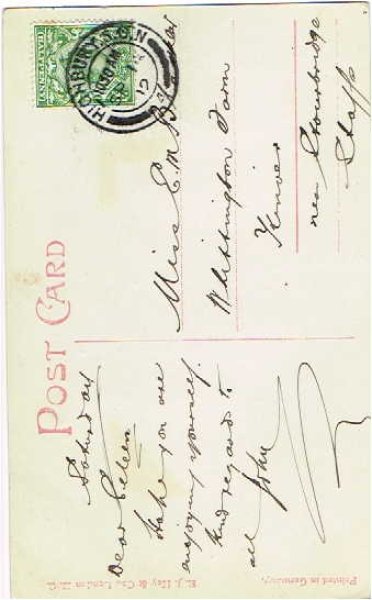 POST CARD
HIGHBURY S.O.N
HALFPENNY
Saturday
Dear Eileen
Hope you are
enjoying yourself.
Kind regards to
all John
Miss E. M.
Whittington Farm
Kinver
near Stourbridge
Staffs
E. J. Hey & Co., London E.C.
Printed in Germany.